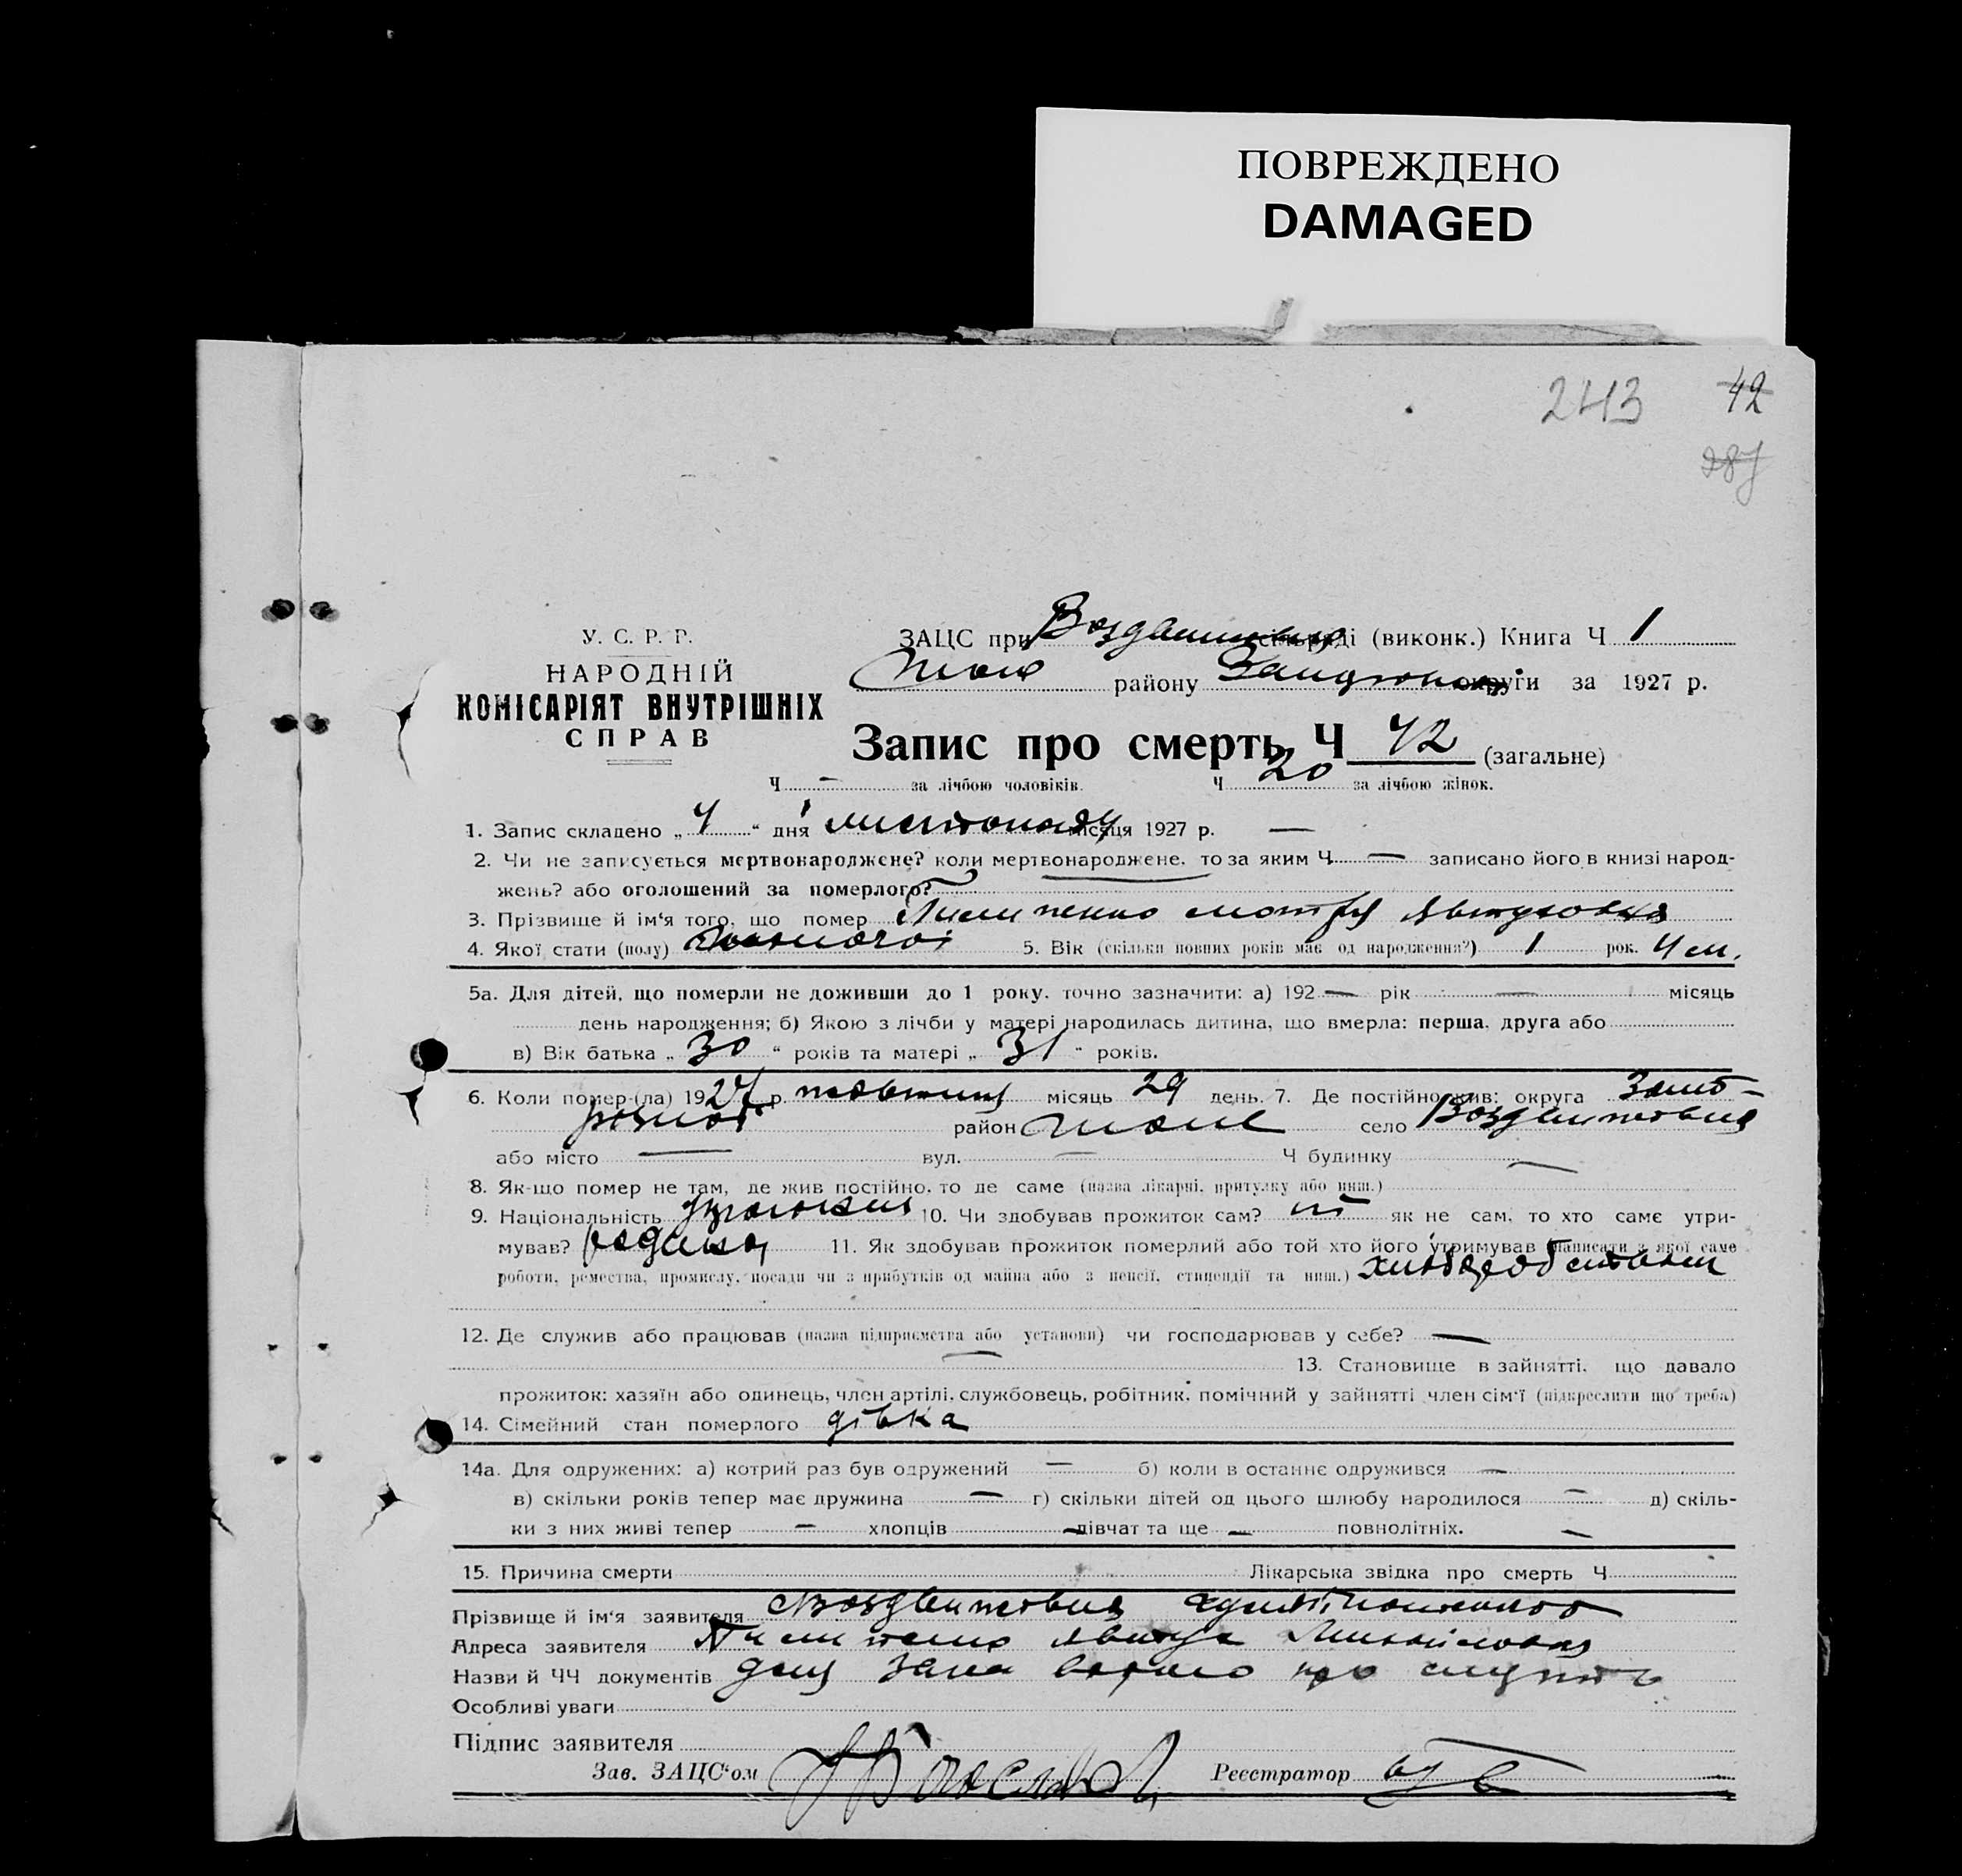 ПОВРЕЖДЕНО
DAMAGED
243 42
287
У. С. Р. Р.
НАРОДНІЙ
КОМІСАРІЯТ ВНУТРІШНІХ
СПРАВ
ЗАЦС при сільраді (виконк.) Книга Ч 1
району округи за 1927 р.
Запис про смерть Ч 42 (загальне)
Ч — за лічбою чоловіків. Ч 20 за лічбою жінок.
1. Запис складено „ 4 “ дня листопаду місяця 1927 р. —
2. Чи не записується мертвонароджене? коли мертвонароджене, то за яким Ч — записано його в книзі народ-
жень? або оголошений за померлого?
3. Прізвище й ім‘я того, що помер
4. Якої стати (полу) 5. Вік (скільки повних років має од народження?) 1 рок. 4 м.
5а. Для дітей, що померли не доживши до 1 року, точно зазначити: а) 192 — рік — місяць
день народження; б) Якою з лічби у матері народилась дитина, що вмерла: перша, друга або
в) Вік батька „ 30 “ років та матері „ 31 “ років.
6. Коли помер-(ла) 1927 р. жовтня місяць 29 день. 7. Де постійно жив: округа
район село
або місто — вул. — Ч будинку —
8. Як-що помер не там, де жив постійно, то де саме (назва лікарні, притулку або инш.)
9. Національність 10. Чи здобував прожиток сам? ні як не сам, то хто саме утри-
мував? родина 11. Як здобував прожиток померлий або той хто його утримував (написати з якої саме
роботи, ремества, промислу, посади чи з прибутків од майна або з пенсії, стипендії та инш.)
12. Де служив або працював (назва підприємства або установи) чи господарював у себе? —
— 13. Становище в зайнятті, що давало
прожиток: хазяїн або одинець, член артілі, службовець, робітник, помічний у зайнятті член сім‘ї (підкреслити що треба)
14. Сімейний стан померлого дівка
14а. Для одружених: а) котрий раз був одружений — б) коли в останнє одружився —
в) скільки років тепер має дружина — г) скільки дітей од цього шлюбу народилося — д) скіль-
ки з них живі тепер — хлопців — дівчат та ще — повнолітніх. —
15. Причина смерти Лікарська звідка про смерть Ч
Прізвище й ім‘я заявителя
Адреса заявителя
Назви й ЧЧ документів
Особливі уваги
Підпис заявителя
Зав. ЗАЦС‘ом Реєстратор